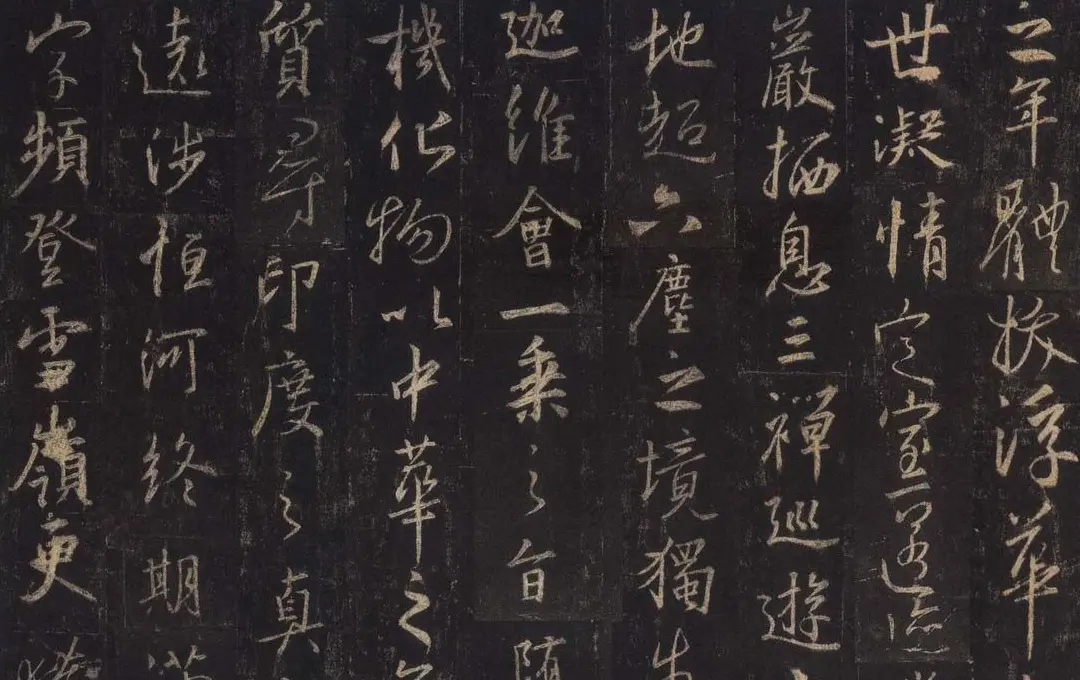 之年體拔浮華
世凝情定室匿迹
巖栖息三禪巡遊
地超六塵之境獨步
迦維會一乘之旨隨
機化物以中華之
質尋印度之真
遠涉恒河終期滿
字頻登雪嶺更獲